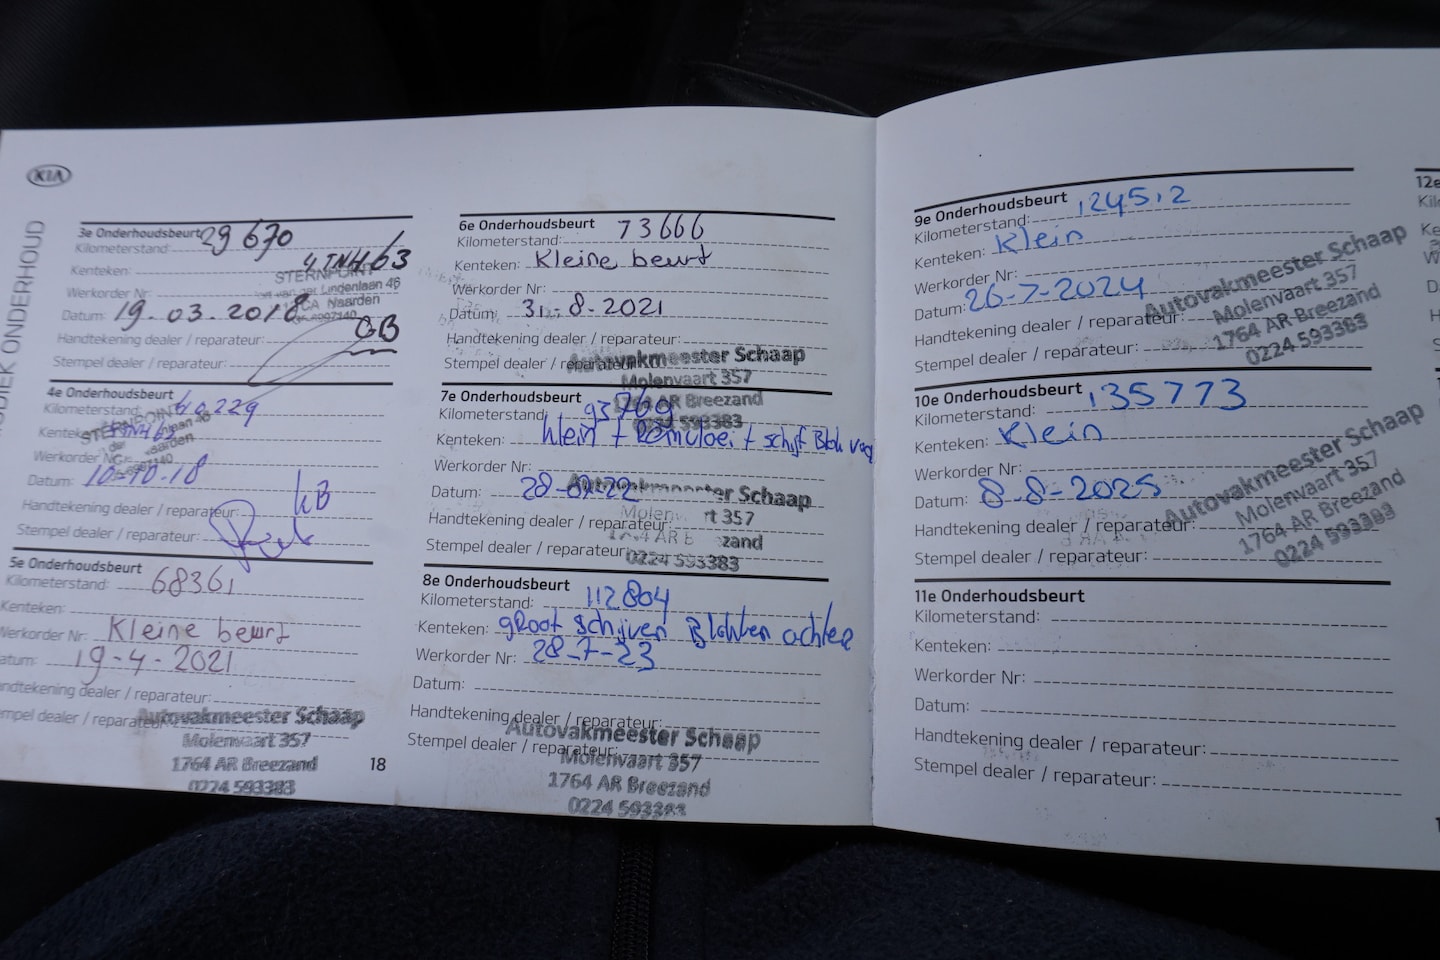 KIA
ODIEK ONDERHOUD
3e Onderhoudsbeurt 29 670
Kilometerstand:
Kenteken: 4TNH63
Werkorder Nr:
STERNPOINT
der Lindenlaan 46
Naarden
Datum: 19-03-2018
Handtekening dealer / reparateur: GB
Stempel dealer / reparateur:
4e Onderhoudsbeurt
Kilometerstand: 40229
Kenteken:
Werkorder Nr:
Datum: 10-10-18
Handtekening dealer / reparateur: KB
Stempel dealer / reparateur:
5e Onderhoudsbeurt
Kilometerstand: 68361
Kenteken:
Werkorder Nr: Kleine beurt
atum: 19-4-2021
andtekening dealer / reparateur:
empel dealer / reparateur:
Autovakmeester Schaap
Molenvaart 357
1764 AR Breezand
0224 593383
18
6e Onderhoudsbeurt
Kilometerstand: 73666
Kenteken: Kleine beurt
Werkorder Nr:
Datum: 31-8-2021
Handtekening dealer / reparateur:
Stempel dealer / reparateur:
Autovakmeester Schaap
Molenvaart 357
1764 AR Breezand
0224 593383
7e Onderhoudsbeurt
Kilometerstand: 93769
Kenteken: klein + Remvloei + schijf Blok
Werkorder Nr:
Datum: 28-07-22
Handtekening dealer / reparateur:
Stempel dealer / reparateur:
Autovakmeester Schaap
Molen rt 357
1764 AR B zand
0224 593383
8e Onderhoudsbeurt
Kilometerstand: 112804
Kenteken: groot schijven Blokken achter
Werkorder Nr: 28-7-23
Datum:
Handtekening dealer / reparateur:
Stempel dealer / reparateur:
Autovakmeester Schaap
Molenvaart 357
1764 AR Breezand
0224 593383
9e Onderhoudsbeurt
Kilometerstand: 124512
Kenteken: Klein
Werkorder Nr:
Datum: 26-7-2024
Handtekening dealer / reparateur:
Stempel dealer / reparateur:
Autovakmeester Schaap
Molenvaart 357
1764 AR Breezand
0224 593383
10e Onderhoudsbeurt
Kilometerstand: 135773
Kenteken: Klein
Werkorder Nr:
Datum: 8-8-2025
Handtekening dealer / reparateur:
Stempel dealer / reparateur:
Autovakmeester Schaap
Molenvaart 357
1764 AR Breezand
0224 593383
11e Onderhoudsbeurt
Kilometerstand:
Kenteken:
Werkorder Nr:
Datum:
Handtekening dealer / reparateur:
Stempel dealer / reparateur:
12e